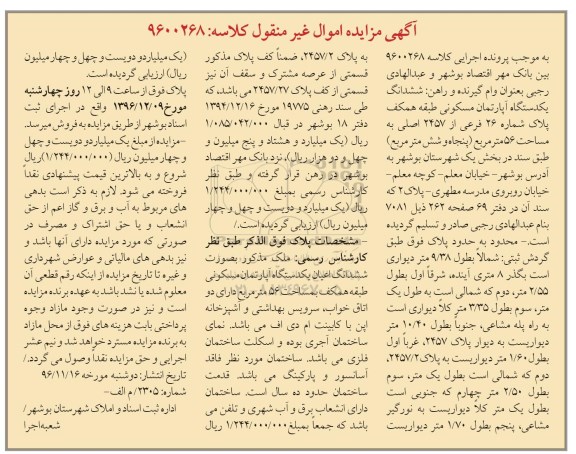 آگهی مزایده اموال غیر منقول کلاسه: ۹۶۰۰۲۶۸
به موجب پرونده اجرایی کلاسه ۹۶۰۰۲۶۸
بین بانک مهر اقتصاد بوشهر و عبدالهادی
رجبی بعنوان وام گیرنده و راهن: ششدانگ
یکدستگاه آپارتمان مسکونی طبقه همکف
پلاک شماره ۲۶ فرعی از ۲۴۵۷ اصلی به
مساحت ۵۶مترمربع (پنجاه و شش متر مربع)
طبق سند در بخش یک شهرستان بوشهر به
آدرس بوشهر- خیابان معلم -کوچه معلم-
خیابان روبروی مدرسه مطهری- پلاک۲ که
سند آن در دفتر ۶۹ صفحه ۲۶۲ ذیل ۷۰۸۱
بنام عبدالهادی رجبی صادر و تسلیم گردیده
است.- محدود به حدود پلاک فوق طبق
گردش ثبتی: شمالاً بطول ۹/۳۸ متر دیواری
است بگذر ۸ متری آینده، شرقاً اول بطول
۲/۵۵ متر، دوم که شمالی است به طول یک
متر، سوم بطول ۳/۳۵ متر کلاً دیواری است
به راه پله مشاعی، جنوباً بطول ۱۰/۴۰ متر
دیواریست به دیوار پلاک ۲۴۵۷، غرباً اول
بطول ۱/۶۰ متر دیواریست به پلاک ۲۴۵۷/۲،
دوم که شمالی است بطول یک متر، سوم
بطول ۲/۵۰ متر چهارم که جنوبی است
بطول یک متر کلاً دیواریست به نورگیر
مشاعی، پنجم بطول ۱/۷۰ متر دیواریست
به پلاک ۲۴۵۷/۲، ضمناً کف پلاک مذکور
قسمتی از عرصه مشترک و سقف آن نیز
قسمتی از کف پلاک ۲۴۵۷/۲۷ می باشد، که
طی سند رهنی ۱۹۷۷۵ مورخ ۱۳۹۴/۱۲/۱۶
دفتر ۱۸ بوشهر در قبال ۱/۰۸۵/۰۴۲/۰۰۰
ریال (یک میلیارد و هشتاد و پنج میلیون و
چهل و دو هزار ریال)، نزد بانک مهر اقتصاد
بوشهر در رهن قرار گرفته و طبق نظر
کارشناس رسمی بمبلغ ۱/۲۴۴/۰۰۰/۰۰۰
ریال (یک میلیارد و دویست و چهل و چهار
میلیون ریال) ارزیابی گردیده است./
- مشخصات پلاک فوق الذکر طبق نظر
کارشناس رسمی: ملک مذکور بصورت
ششدانگ اعیان یکدستگاه آپارتمان مسکونی
طبقه همکف بمساحت ۵۶ متر مربع دارای دو
اتاق خواب، سرویس بهداشتی و آشپزخانه
اپن با کابینت ام دی اف می باشد. نمای
ساختمان آجری بوده و اسکلت ساختمان
فلزی می باشد. ساختمان مورد نظر فاقد
آسانسور و پارکینگ می باشد. قدمت
ساختمان حدود ده سال است. ساختمان
دارای انشعاب برق و آب شهری و تلفن می
باشد که جمعاً بمبلغ ۱/۲۴۴/۰۰۰/۰۰۰ ریال
(یک میلیارد و دویست و چهل و چهار میلیون
ریال) ارزیابی گردیده است.
پلاک فوق از ساعت ۹ الی ۱۲ روز چهارشنبه
مورخ ۱۳۹۶/۱۲/۰۹ واقع در اجرای ثبت
اسناد بوشهر از طریق مزایده به فروش میرسد.
-مزایده از مبلغ یک میلیارد و دویست و چهل
و چهار میلیون ریال (۱/۲۴۴/۰۰۰/۰۰۰) ریال
شروع و به بالاترین قیمت پیشنهادی نقداً
فروخته می شود. لازم به ذکر است بدهی
های مربوط به آب و برق و گاز اعم از حق
انشعاب و یا حق اشتراک و مصرف در
صورتی که مورد مزایده دارای آنها باشد و
نیز بدهی های مالیاتی و عوارض شهرداری
و غیره تا تاریخ مزایده از اینکه رقم قطعی آن
معلوم شده یا نشد باشد به عهده برنده مزایده
است و نیز در صورت وجود مازاد وجوه
پرداختی بابت هزینه های فوق از محل مازاد
به برنده مزایده مسترد خواهد شد و نیم عشر
اجرایی و حق مزایده نقداً وصول می گردد./
تاریخ انتشار: دوشنبه مورخه ۹۶/۱۱/۱۶
شماره: ۲۳۰۵/ م الف-
اداره ثبت اسناد و املاک شهرستان بوشهر /
شعبه اجرا